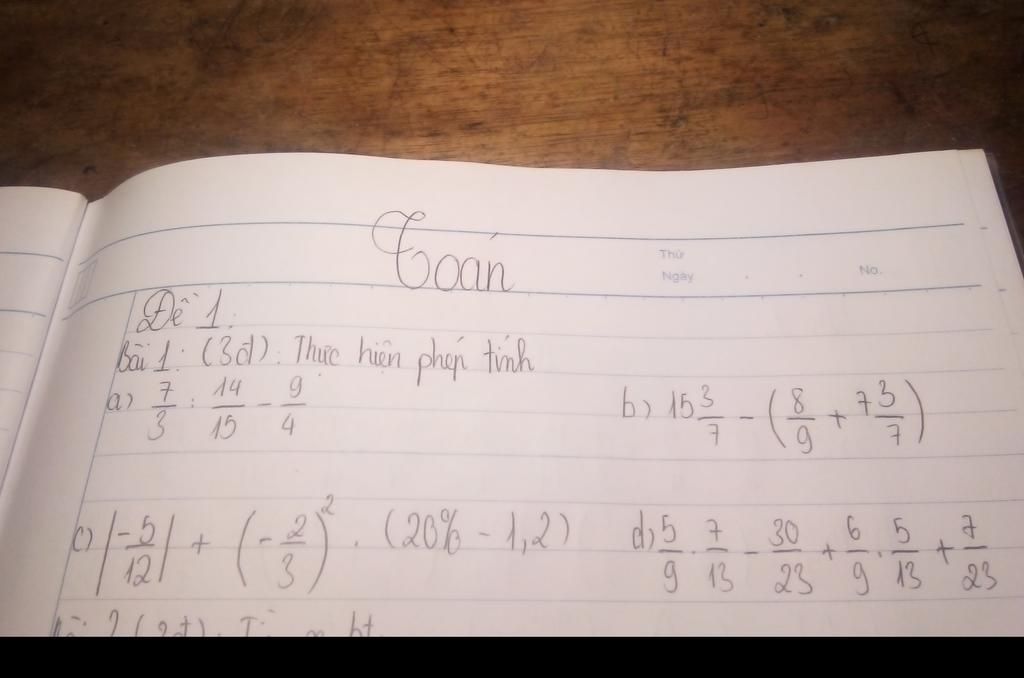 Toán
Thứ
Ngày . . No.
Đề 1:
Bài 1: (3đ): Thực hiện phép tính
a) 7/3 : 14/15 - 9/4
b) 15 3/7 - (8/9 + 7 3/7)
c) |-5/12| + (-2/3)² . (20% - 1,2)
d) 5/9 . 7/13 - 30/23 + 6/9 . 5/13 + 7/23